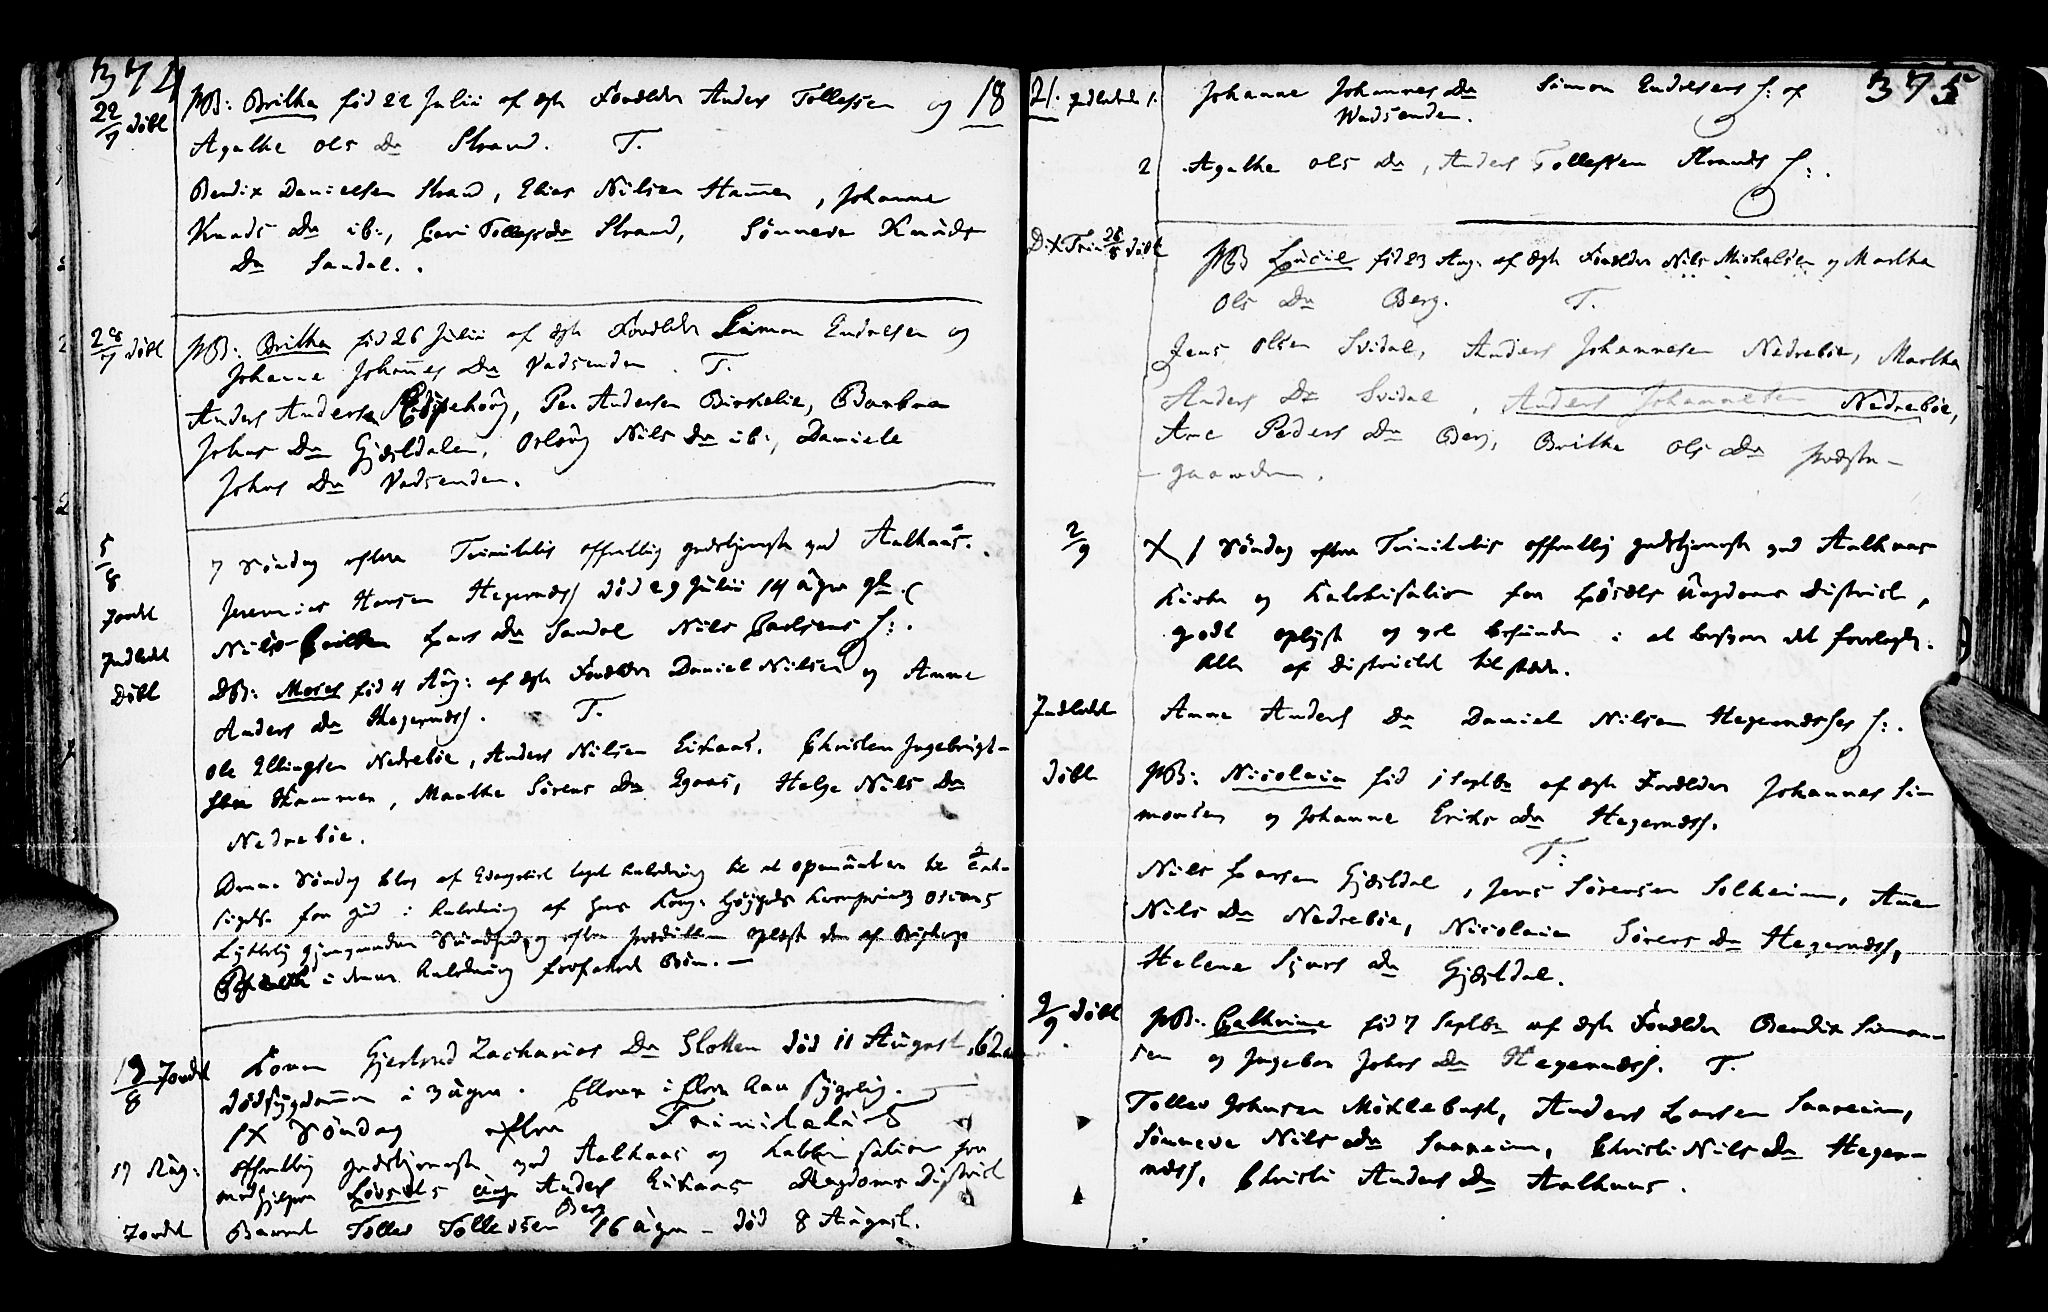 374
22/7 döbt PB: Britha föd 22 Julii af Ægte Forældre Anders Tollefsen og 18
Agathe Ols Dr Strand. T.
Bendix Danielsen Strand, Elias Nilsen Hamen, Johanne
Knuds Dr ib:, Kari Tollefs Dr Strand, Sönneve Knuds
Dr Sandal.
28/7 döbt PB: Britha föd 26 Julii af Ægte Forældre Simon Endresen og
Johanne Johannes Dr Vadsenden. T.
Anders Andersen, Per Andersen Birkelie, Barbra
Johns Dr Gjæsdalen, Orloug Nils Dr ib:, Daniele
Johns Dr Vadsenden.
5/8 7 Söndag efter Trinitatis offentlig gudstjeneste ved Aalhuus.
Jordet Jeremias Hansen Hegernæss död 29 Julii 14 uger gl.
Indledet Lars Dr Sandal Nils Carlsens H:.
Döbt DB: Moses föd 4 Aug: af Ægte Forældre Daniel Nilsen og Anne
Anders Dr Hegernæss. T.
Ole Ellingsen Nedreböe, Anders Nilsen Eikaas, Christen Ingebrigt-
sen Hammer, Marthe Sörens Dr Egaas, Helge Nils Dr
Nedreböe.
Denne Söndag blev af Evangeliet taget Anledning til at opmuntre til Tak-
sigelse for Gud i Anledning af Hans Kong: Höjheds Kronprinds Oscars
Lykkelig og efter Prædiken oplæst den af Biskop
i denne Anledning forfattede Bön. —
19/8 Jordet Konen Gjertrud Zacharias Dr Slotten död 11 August, 62
dödsygdommen i 3 uger. Ellers i flere Aar sygelig.
IX Söndag efter Trinitatis
19 Aug: offentlig gudstjeneste ved Aalhuus og Katekisation for
Anders Eikaas Ungdoms District
Berg
Jordet Barnet Tollev Tollevsen 16 uger - död 8 August.
375
21. Indledet 1. Johanne Johannes Dr Simon Endresens H: af
Vadsenden.
2 Agathe Ols Dr, Anders Tollefsen Strands H:.
D. X. Trin 26/8 döbt PB Lucie föd 23 Aug: af Ægte Forældre Nils Michelsen og Martha
Ols Dr Berg. T.
Jens Olsen Svidal, Anders Johannesen Nedreböe, Martha
Anders Dr Svidal, Anders Johannesen Nedreböe,
Ane Peders Dr Berg, Britha Ols Dr Præste-
gaarden.
2/9 XI Söndag efter Trinitatis offentlig gudstjeneste ved Aalhuus
Kirke og Katekisation for Ungdoms District,
godt oplyst og vel befunden i at besvare det forelagte.
Alle af Districtet tilstæde.
Indledet Anne Anders Dr Daniel Nilsen Hegernæsses H:.
döbt PB: Nicolaia föd 1 Septbr af Ægte Forældre Johannes Si-
monsen og Johanne Eriks Dr Hegernæss.
T:
Nils Larsen Gjæsdal, Jens Sörensen Solheim, Ane
Nils Dr Nedreböe, Nicolaia Sörens Dr Hegernæss,
Helene Sjurs Dr Gjæsdal.
9/9 döbt PB: Cathrine föd 7 Septbr af Ægte Forældre Bendix Simon-
sen og Ingebor Johns Dr Hegernæss. T.
Tollev Johnsen Möklebust, Anders Larsen Saareim,
Sönneve Nils Dr Saareim, Christi Nils Dr Heger-
næss, Christi Anders Dr Aalhuus.